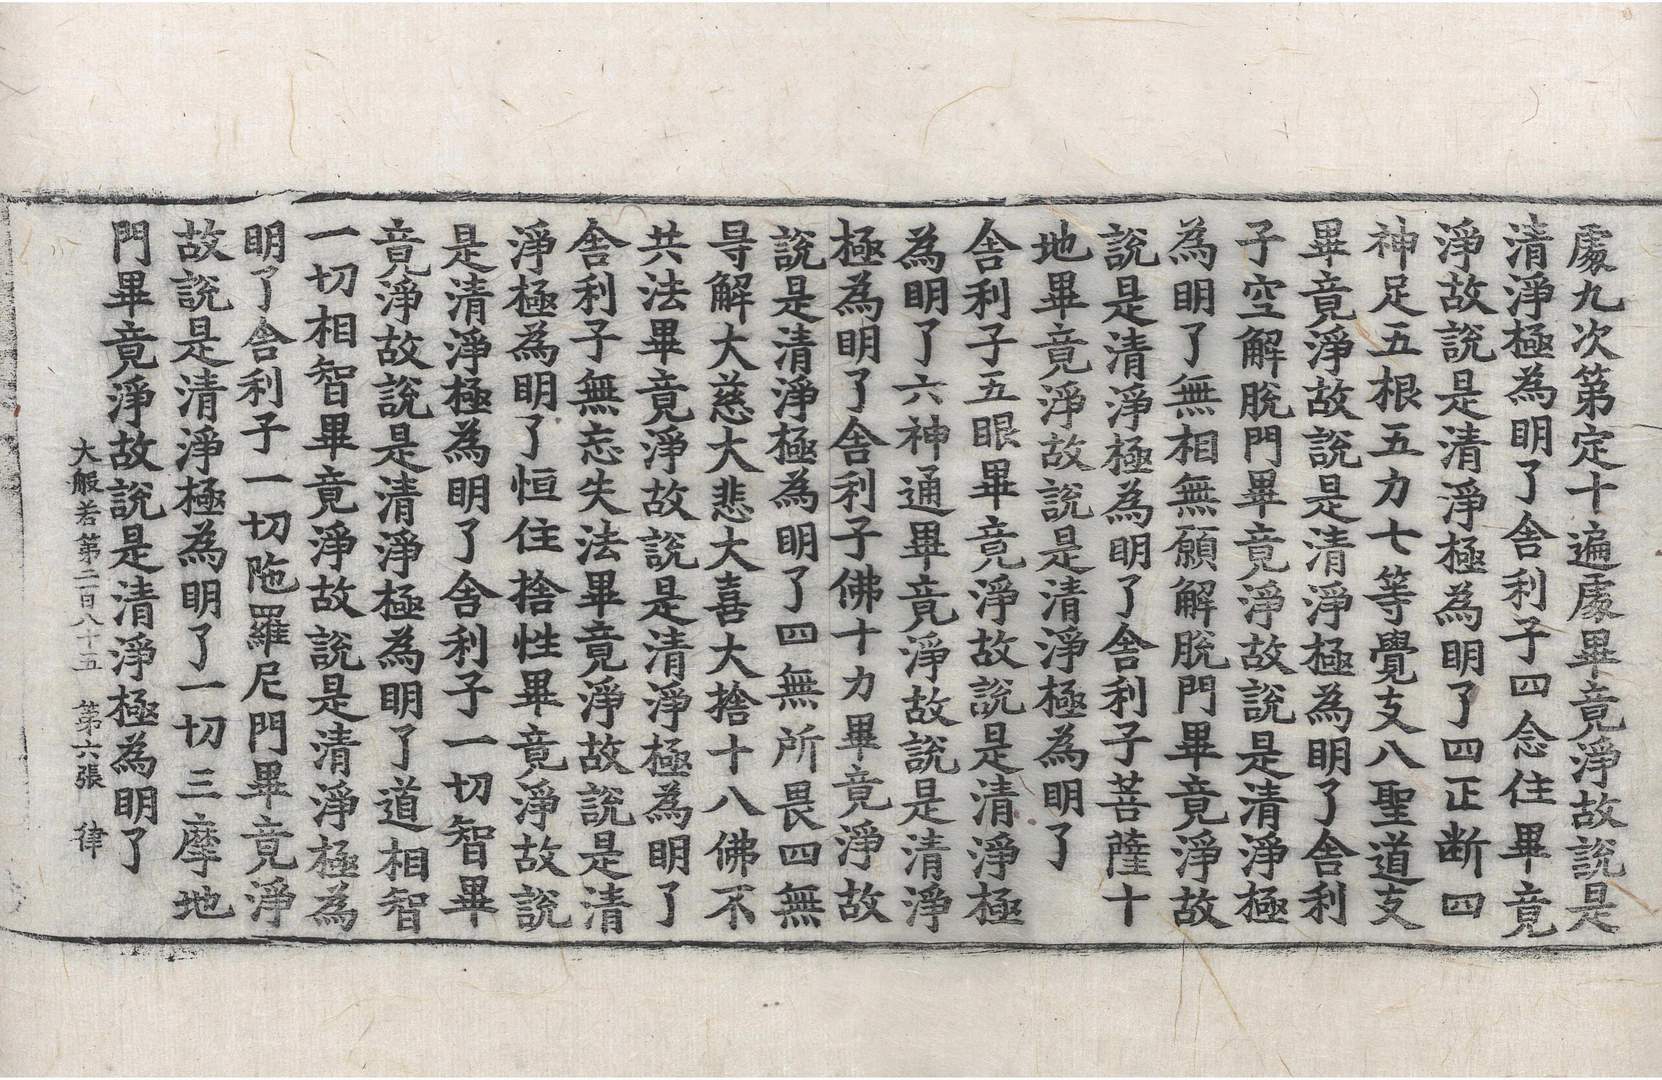 處九次第定十遍處畢竟淨故說是
清淨極為明了舍利子四念住畢竟
淨故說是清淨極為明了四正断四
神足五根五力七等覺支八聖道支
畢竟淨故說是清淨極為明了舍利
子空解脫門畢竟淨故說是清淨極
為明了無相無願解脫門畢竟淨故
說是清淨極為明了舍利子菩薩十
地畢竟淨故說是清淨極為明了
舍利子五眼畢竟淨故說是清淨極
為明了六神通畢竟淨故說是清淨
極為明了舍利子佛十力畢竟淨故
說是清淨極為明了四無所畏四無
㝵解大慈大悲大喜大捨十八佛不
共法畢竟淨故說是清淨極為明了
舍利子無忘失法畢竟淨故說是清
淨極為明了恒住捨性畢竟淨故說
是清淨極為明了舍利子一切智畢
竟淨故說是清淨極為明了道相智
一切相智畢竟淨故說是清淨極為
明了舍利子一切陁羅尼門畢竟淨
故說是清淨極為明了一切三摩地
門畢竟淨故說是清淨極為明了
大般若第二百八十五 第六張 律